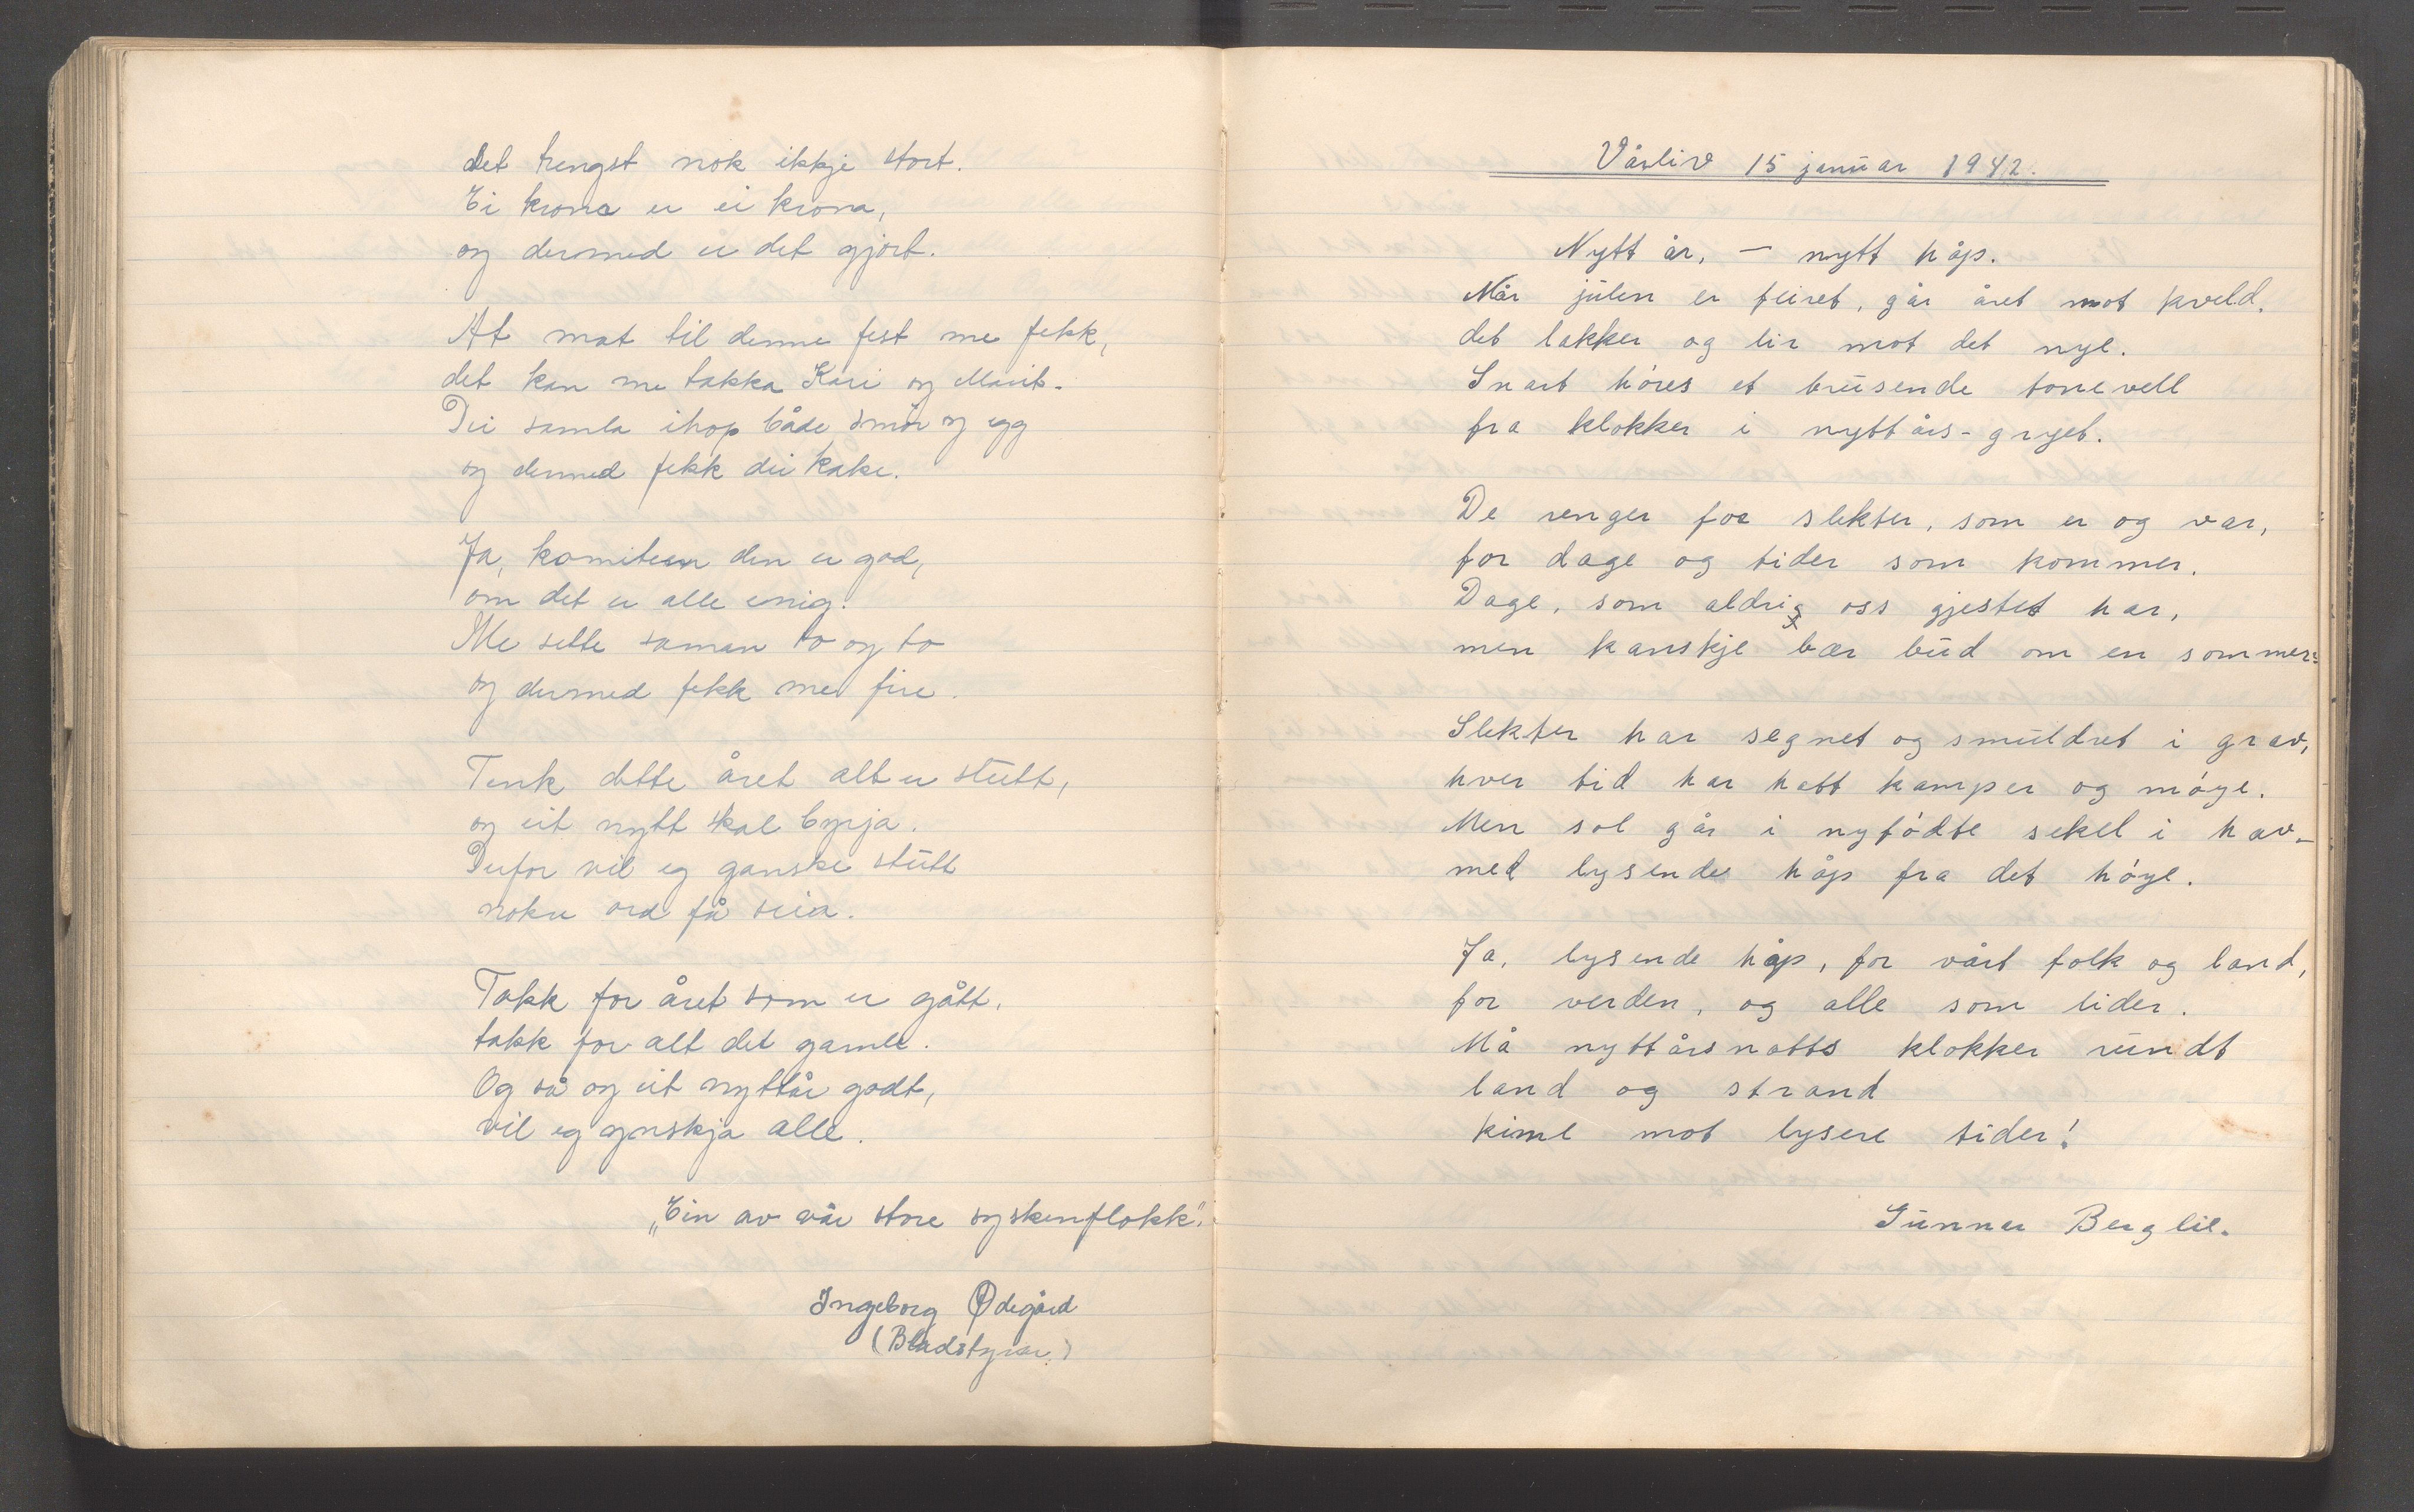 det trengst nok ikkje stort.
Ei krona er ei krona,
og dermed er det gjort.
At mat til denne fest me fekk,
det kan me takka Kari og Marit.
Dei samla ihop både smör og egg
og dermed fekk dei kake.
Ja, komiteen den er god,
om det er alle enig.
Me sette saman to og to
og dermed fekk me fire.
Tenk dette året alt er slutt,
og eit nytt skal byrja.
Derfor vil eg ganske stutt
nokre ord få seia.
Takk for året som er gått,
takk for alt det gamle.
Og så og eit nyttår godt,
vil eg ynskja alle.
„Ein av vår store syskenflokk".
Ingeborg Ødegård
(Bladstyrar)
Vårliv 15 januar 1942.
Nytt år, – nytt håp.
Når julen er feiret, går året mot kveld.
det lakker og lir mot det nye.
Snart høres et brusende tonevell
fra klokker i nyttårs-gryet.
De renger for slekter, som er og var,
for dage og tider som kommer.
Dage, som aldrig oss gjestet har,
men kanskje bær bud om en sommer.
Slekter har segnet og smuldret i grav,
hver tid har hatt kamper og møye.
Men sol går i nyfødte sekel i hav –
med lysende håp fra det høye.
Ja, lysende håp, for vårt folk og land,
for verden, og alle som lider.
Må nyttårsnatts klokker rundt
land og strand
kime mot lysere tider!
Gunnar Berglie.